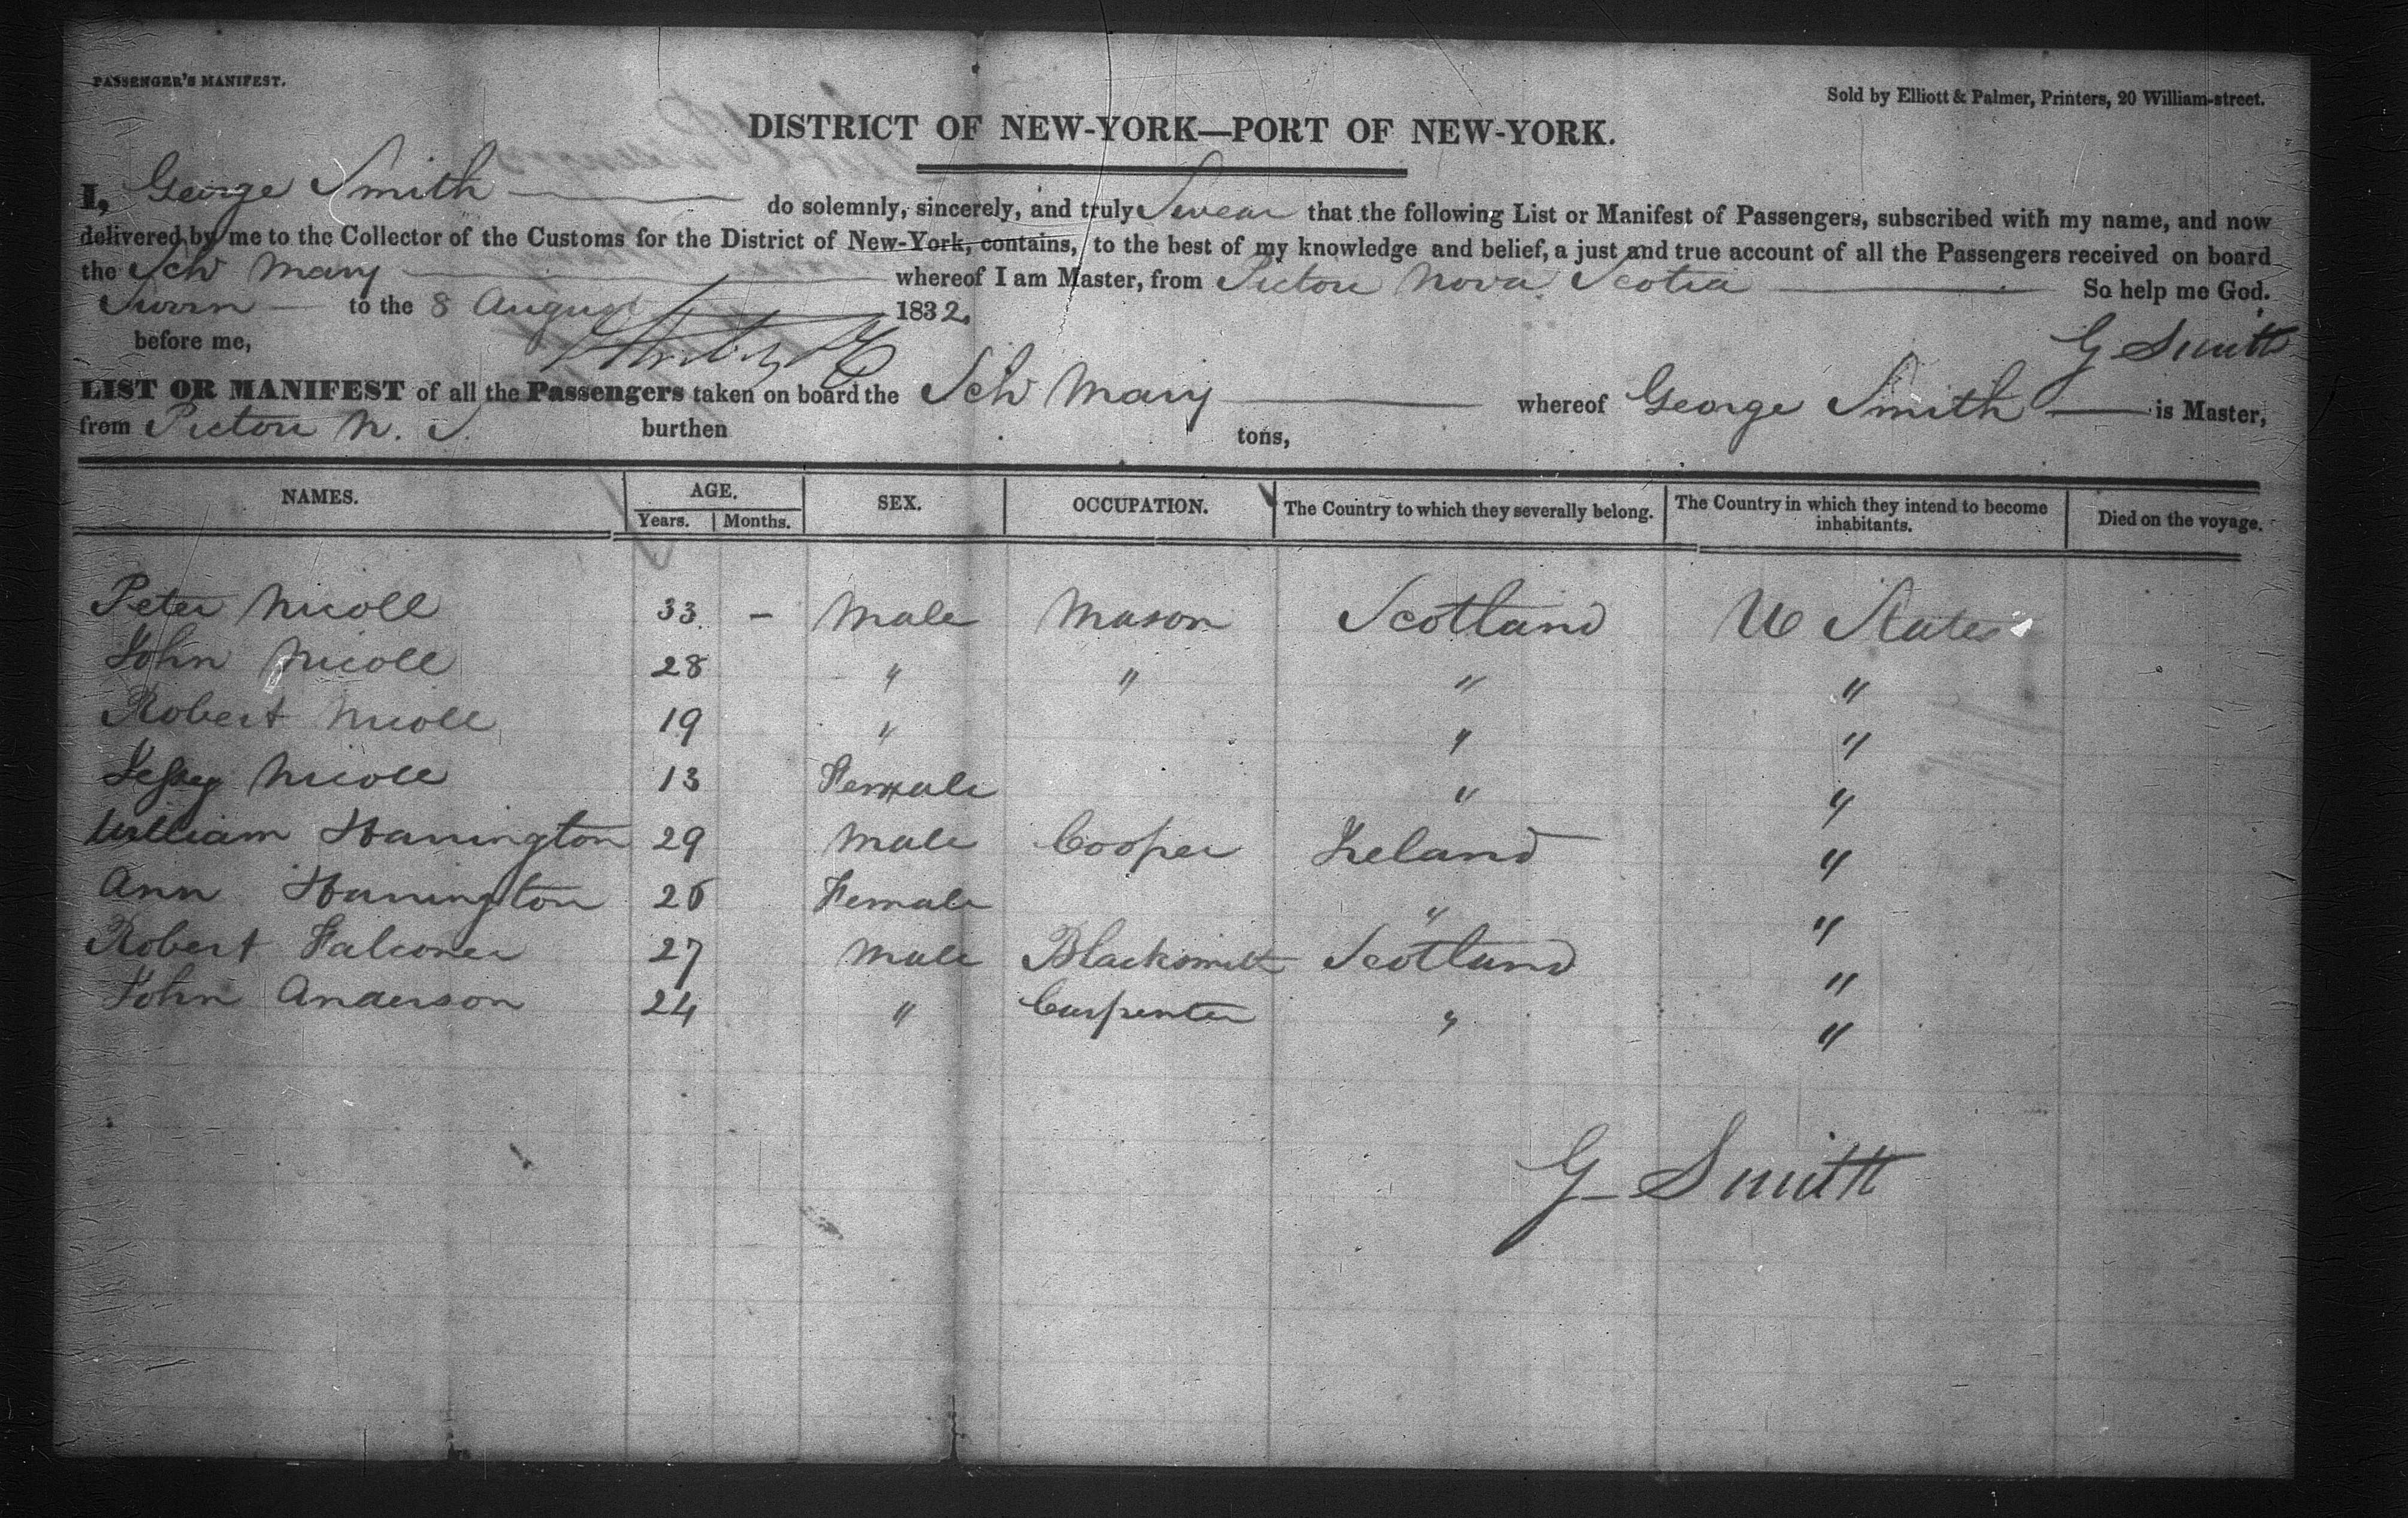 PASSENGER'S MANIFEST.
Sold by Elliott & Palmer, Printers, 20 William-street.
DISTRICT OF NEW-YORK—PORT OF NEW-YORK.
I, George Smith do solemnly, sincerely, and truly Swear that the following List or Manifest of Passengers, subscribed with my name, and now
delivered by me to the Collector of the Customs for the District of New-York, contains, to the best of my knowledge and belief, a just and true account of all the Passengers received on board
the Sch Mary whereof I am Master, from Pictou Nova Scotia So help me God.
Sworn to the 8 August 1832.
before me,
G Smith
LIST OR MANIFEST of all the Passengers taken on board the Sch Mary whereof George Smith is Master,
from Pictou N. S. burthen tons,
NAMES. AGE. SEX. OCCUPATION. The Country to which they severally belong. The Country in which they intend to become inhabitants. Died on the voyage.
Years. Months.
Peter Nicoll 33 - Male Mason Scotland U States
John Nicoll 28 " " " "
Robert Nicoll 19 " " "
Jessey Nicoll 13 Female " "
William Hanington 29 Male Cooper Ireland "
Ann Hanington 26 Female " "
Robert Falconer 27 Male Blacksmith Scotland "
John Anderson 24 " Carpenter " "
G Smith